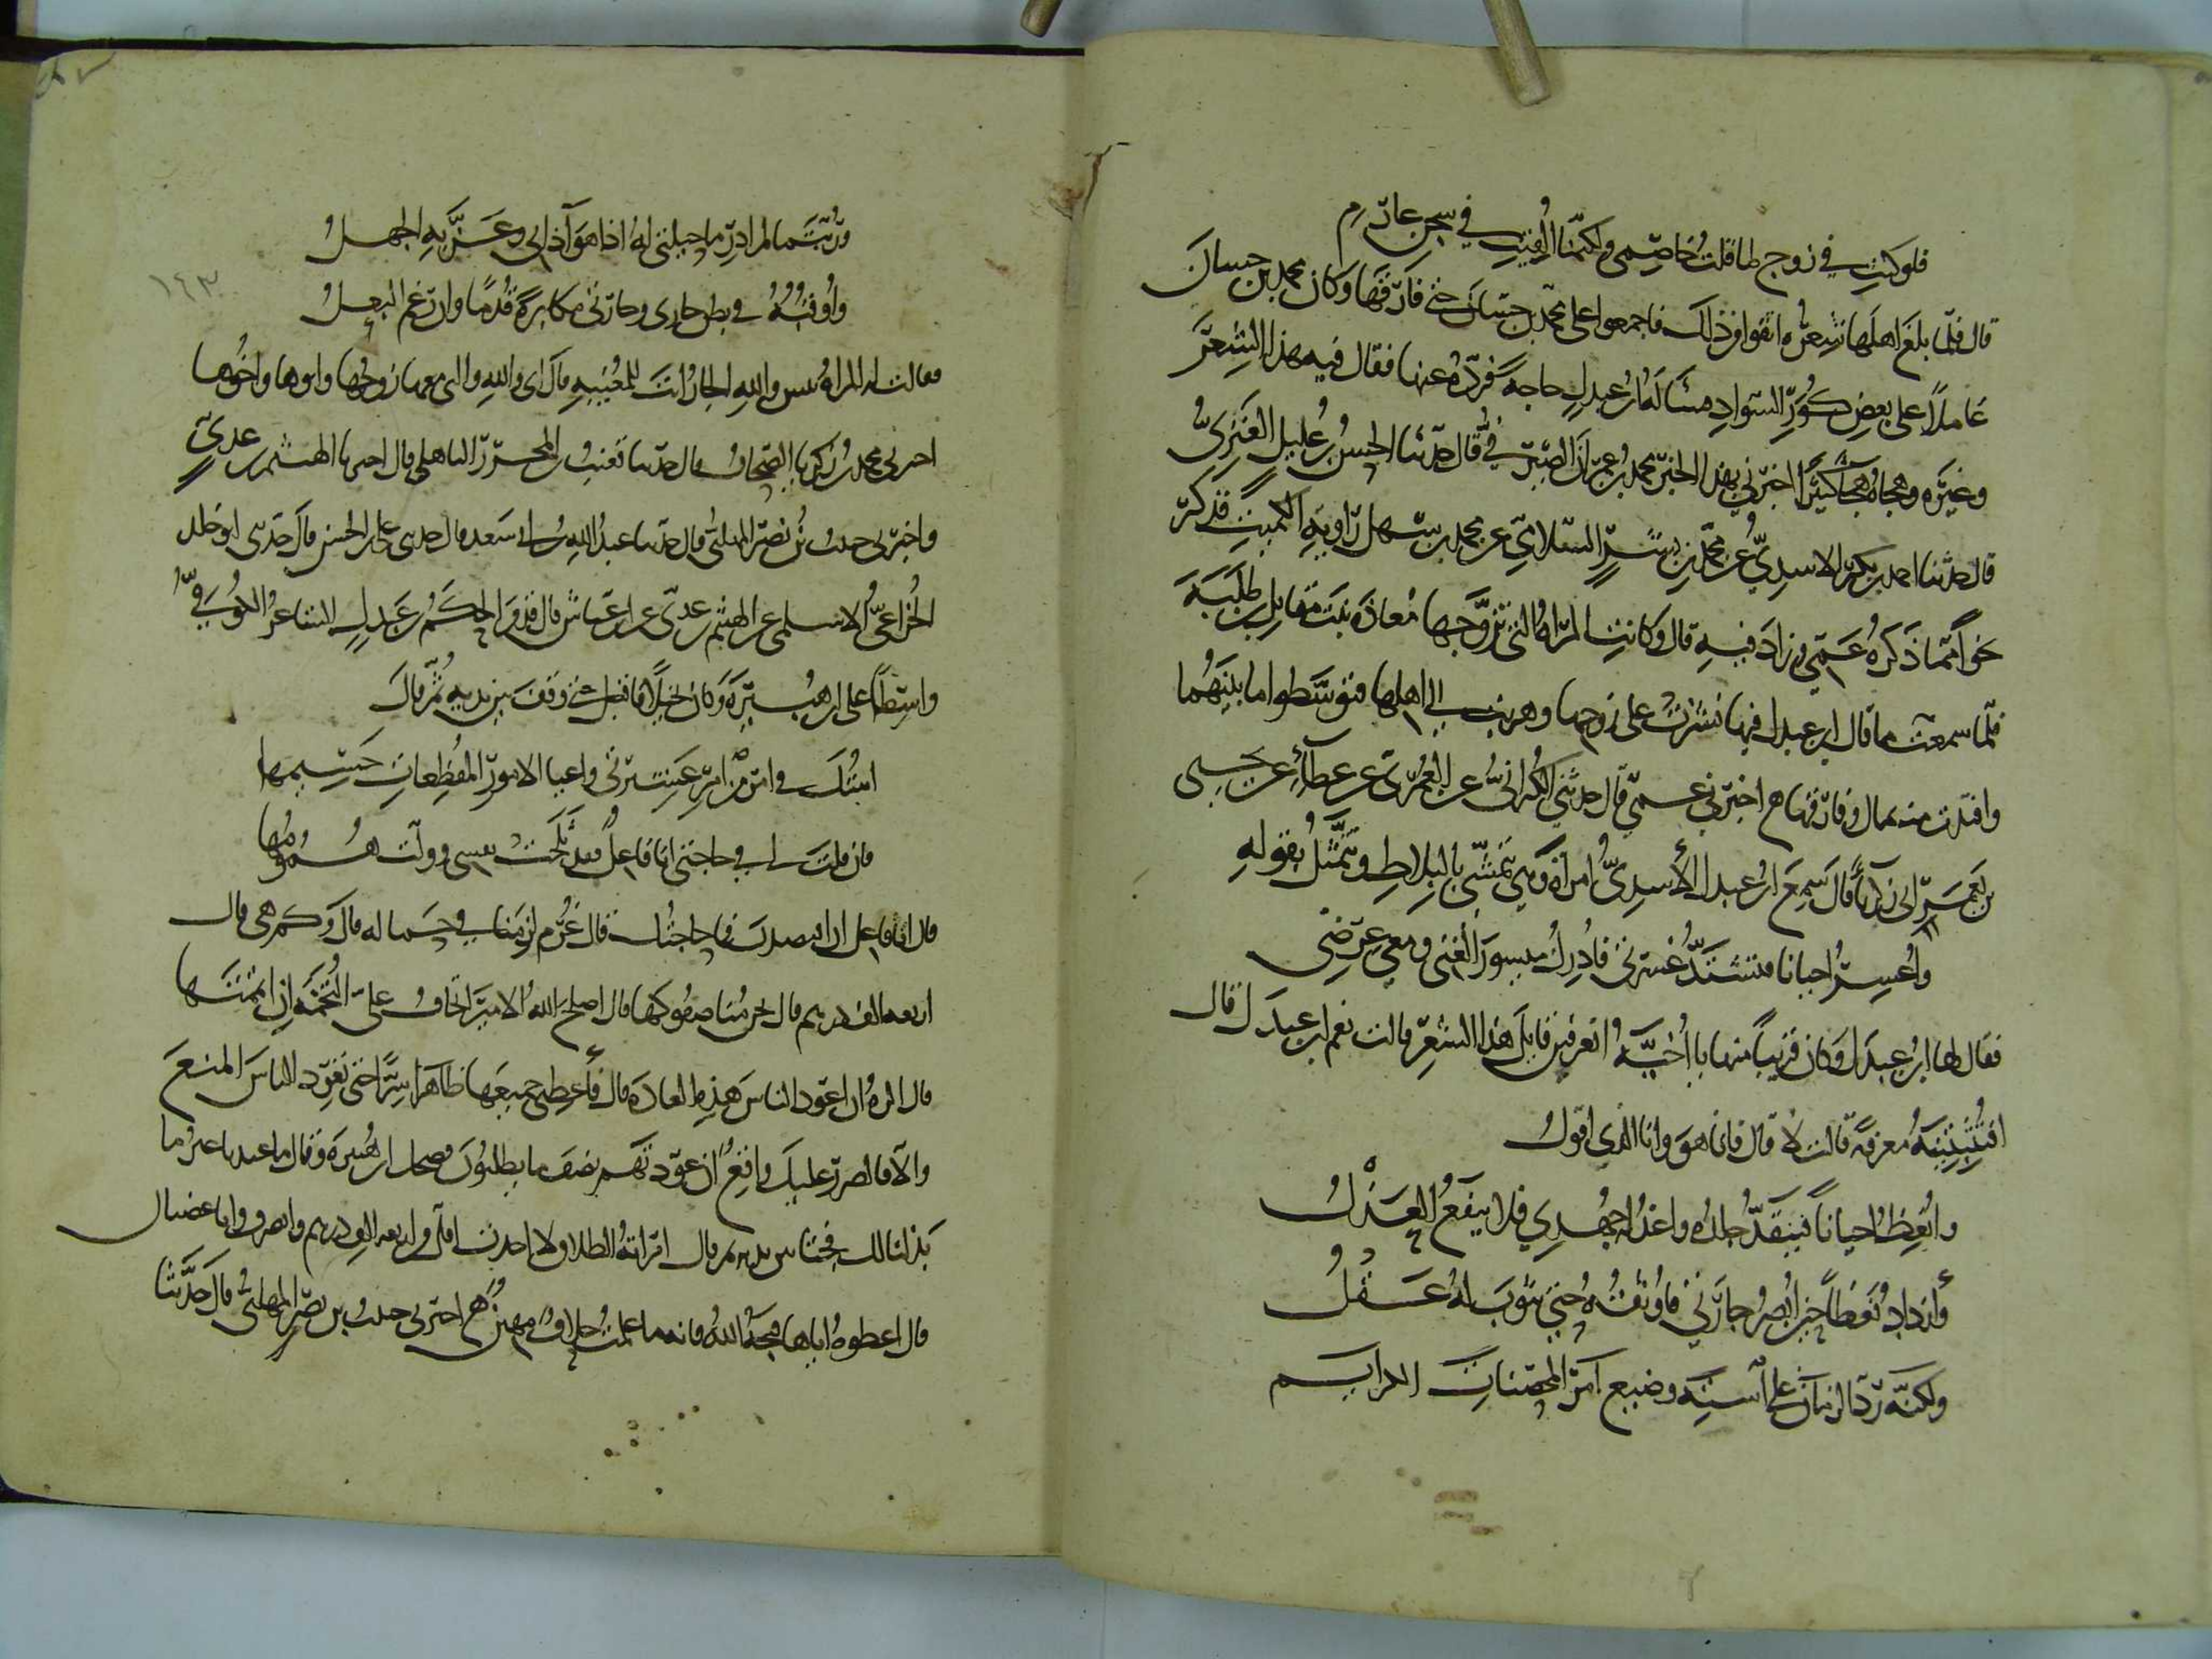 فلو كنتِ في زوج لما قلتُ خاصمي ولكنّما أُلقيتِ في سجن عارمِ
قال فلمّا بلغ اهلها شعرُه انفوا من ذلك فاجمعوا على محمّد بن حسّان حتى فارقها وكان محمد بن حسان
عاملاً على بعض كُوَرِ السواد فسَأله ابن عبدلٍ حاجةً فردّه عنها فقال فيه هذا الشعرَ
وغيره وهجاه هجآءً كثيرًا اخبرني بهذا الخبر محمد بن عمران الصيرفيُّ قال حدّثنا الحسن بن عليل العنزيُّ
قال حدثنا احمد بن بكير الاسديُّ عن محمّد بن بشرٍ السلاميّ عن محمد بن سهل راوية الكميت فذكر
نحواً ممّا ذكره عمّي وزاد فيه قال وكانت المرأة التي تزوّجها معاذة بنت مقاتل بن طلبة
فلمّا سمعت ما قال ابن عبدل فيها نشزت على زوجها وهربت الى اهلها فتوسّطوا ما بينهما
وافتدت منه بمال وفارقها ح اخبرني عمّي قال حدثني الكُرانيُّ عن العُمَريّ عن عطآءٍ عن يحيى
بن نصر ابى زكريّا قال سمع ابن عبدل الأسديُّ امرأةً وهي تتمشّى بالبلاط وتتمثّل بقوله
وأُعسِرُ احيانا فتشتدُّ عُسرتي فادرك ميسور الغنى ومعي عرضي
فقال لها ابن عبدل وكان قريباً منها يا أُخيّةُ اتعرفين قايل هذا الشعر قالت نعم ابن عبدل قال
افتُثبتينه معرفةً قالت لا قال فانا هو وانا الذي اقول
وانعظُ احياناً فينقدُّ جلدُه واعذله جُهدي فلا ينفع العذلُ
وأزداد نعظاً حين ابصر جارتي فاوثقه حتى يثوب له عقلُ
ولكنّه ردّ الزمان على استه وضيع امر المحصنات الكرايم
ورُبّتَما لم ادرِ ما حيلتي له اذا هو آذاني وعزّ به الجهلُ
وآوفيه في بطن جاري وجارتي مكابرةً قُدمًا وان رغم البعلُ
١٤٣
فقالت له المرأة بئس والله الجار انت للمُغيبة قال اى والله والتى معها زوجها وابوها واخوها
اخبرني محمد بن زكريا الصحاف قال حدثنا قعنب بن المحرز الباهلي قال اخبرنا الهيثم بن عديّ
واخبرني حبيب بن نصر المهلبيُّ قال حدثنا عبد الله بن ابى سعد قال حدثني على بن الحسن قال حدثني ابو خلد
الخزاعيُّ الاسلمي عن الهيثم بن عديّ عن ابن عيّاش قال قدم الحكم بن عبدلٍ الشاعر الكوفيُّ
واسطاً على ابن هُبيرة وكان بخيلاً فاقبل حتى وقف بين يديه ثمّ قال
اتيتُك في امرٍ من امر عشيرتي واعيا الامور المفظعات جسيمها
فان قلت لي في حاجتي انا فاعلٌ فقد ثلجت نفسى وولّت همومها
قال انا فاعل ان اقتصدتَ فما حاجتك قال غُرم لزمني في حمالة قال وكم هي قال
اربعة الف درهم قال نحن مناصفوكها قال اصلح الله الامير اتخاف عليّ التخمة ان اتممتها
قال اكره ان اعوّد الناس هذه العادة قال فأعطني جميعها ظاهرا سرًّا حتى تعوّد الناس المنع
والّا فالضرر عليك واقعٌ ان عوّدتهم نصف ما يطلبون فضحك ابن هُبيرة وقال ما عندنا غير ما
بذلنا لك فجثا بين يديه ثم قال امراته الطلاق لا اخذت اقلّ من اربعة الف درهم وانصرف وانا غضبان
قال اعطوه اياها قبحه الله فانه ما علمت حلاف مهين ح اخبرني حبيب بن نصر المهلبيُّ قال حدّثنا